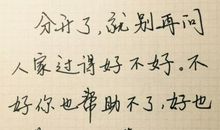 分开了，就别再问
人家过得好不好。不
好你也帮助不了，好也